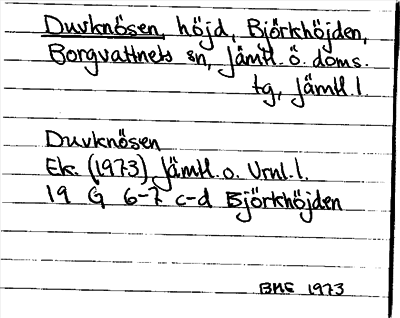 Duvknösen, höjd, Björkhöjden,
Borgvattnets sn, Jämtl. ö. doms.
tg, Jämtl. l.
Duvknösen
Ek. (1973) Jämtl. o. Vrnl. l.
19 G 6-7 c-d Björkhöjden
BME 1973